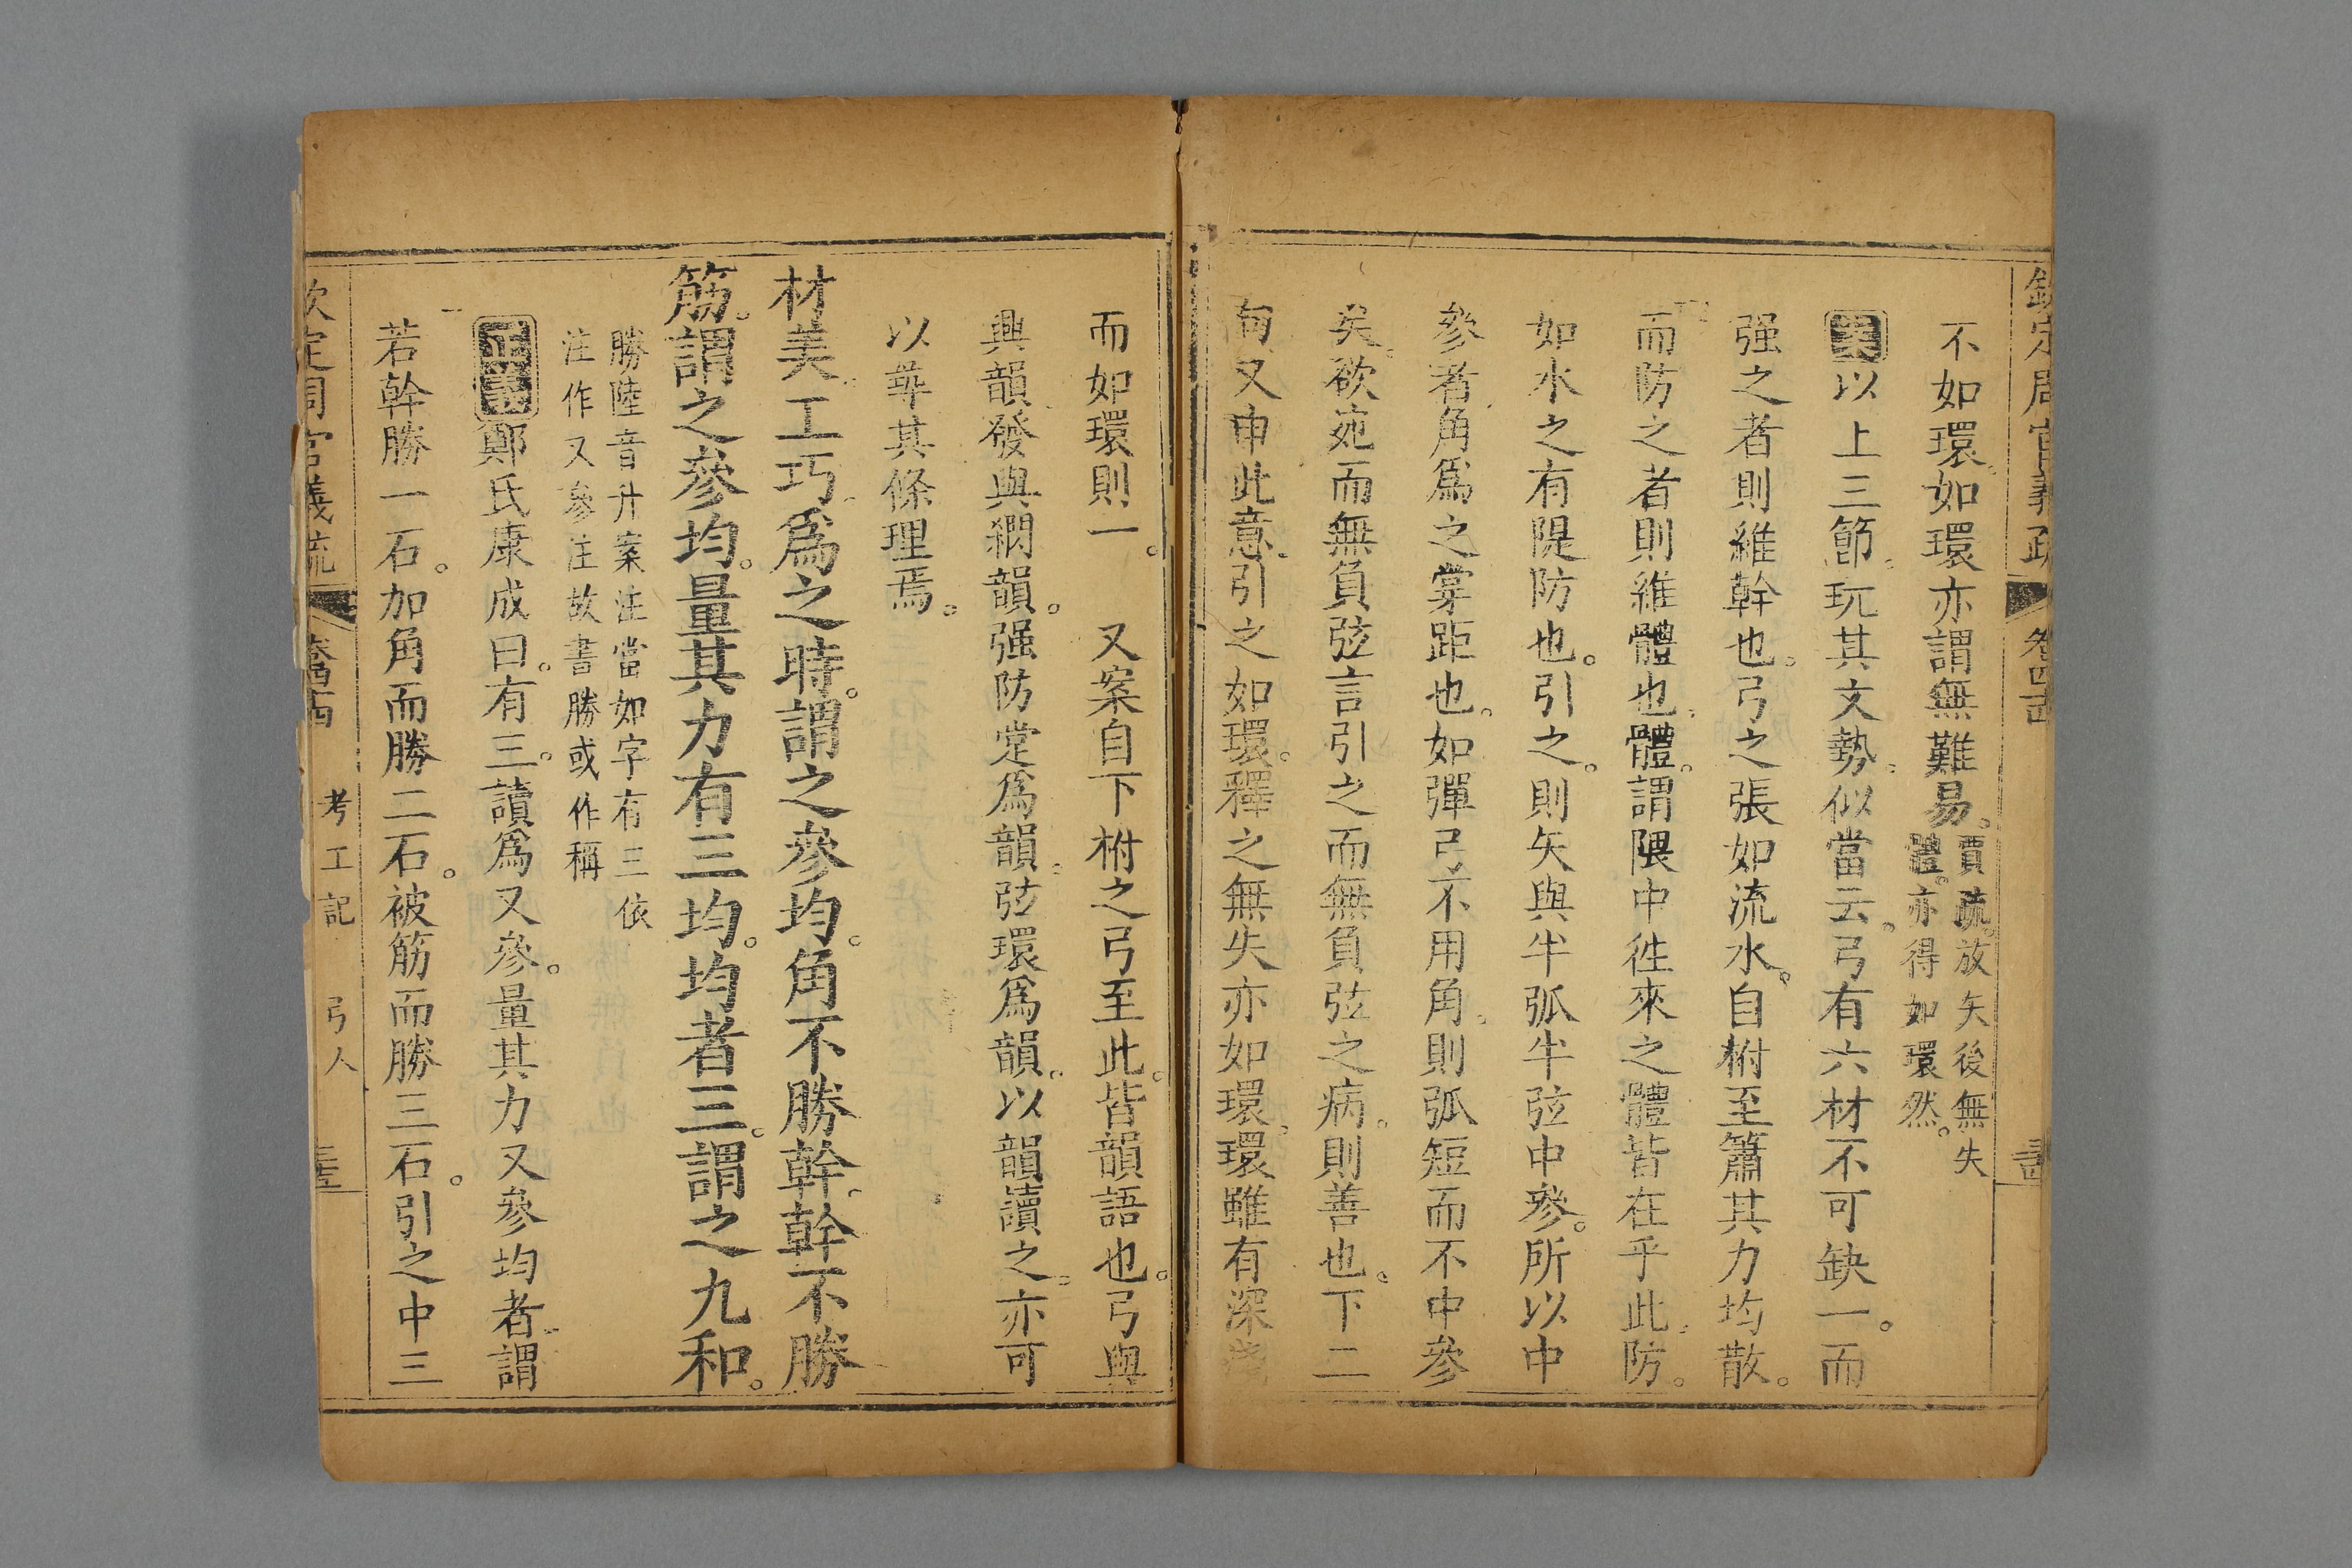 欽定周官義疏
卷四十四
不如環如環亦謂無難易。賈疏。放矢後無失
體。亦得如環然。
案以上三節。玩其文勢。似當云。弓有六材不可缺一。而
强之者則維幹也。弓之張如流水。自柎至簫其力均散。
而防之者則維體也。體。謂隈中徃來之體皆在乎此。防。
如水之有隄防也。引之。則矢與半弧半弦中參。所以中
參者角爲之㮄距也。如彈弓不用角。則弧短而不中參
矣。欲宛而無負弦言引之而無負弦之病。則善也。下二
句又申此意。引之如環。釋之無失亦如環。環雖有深
而如環則一。　又案自下柎之弓至此。皆韻語也。弓與
興韻發與㶚韻。强防定爲韻。弦環爲韻。以韻讀之。亦可
以尋其條理焉。
材美。工巧。爲之時。謂之參均。角不勝幹。幹不勝
筋。謂之參均。量其力有三均。均者三。謂之九和。
勝陸音升案注當如字有三依
注作又參注故書勝或作稱
正義鄭氏康成曰。有三。讀爲又參。量其力又參均者。謂
若幹勝一石。加角而勝二石。被筋而勝三石。引之中三
欽定周官義疏
卷四十四
考工記　弓人